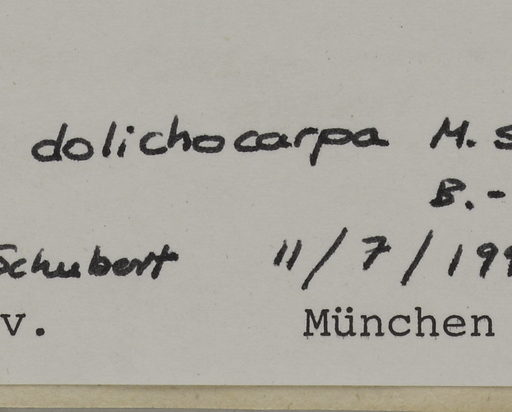 dolichocarpa M. S
B.-
Schubert 11/7/199
v. München